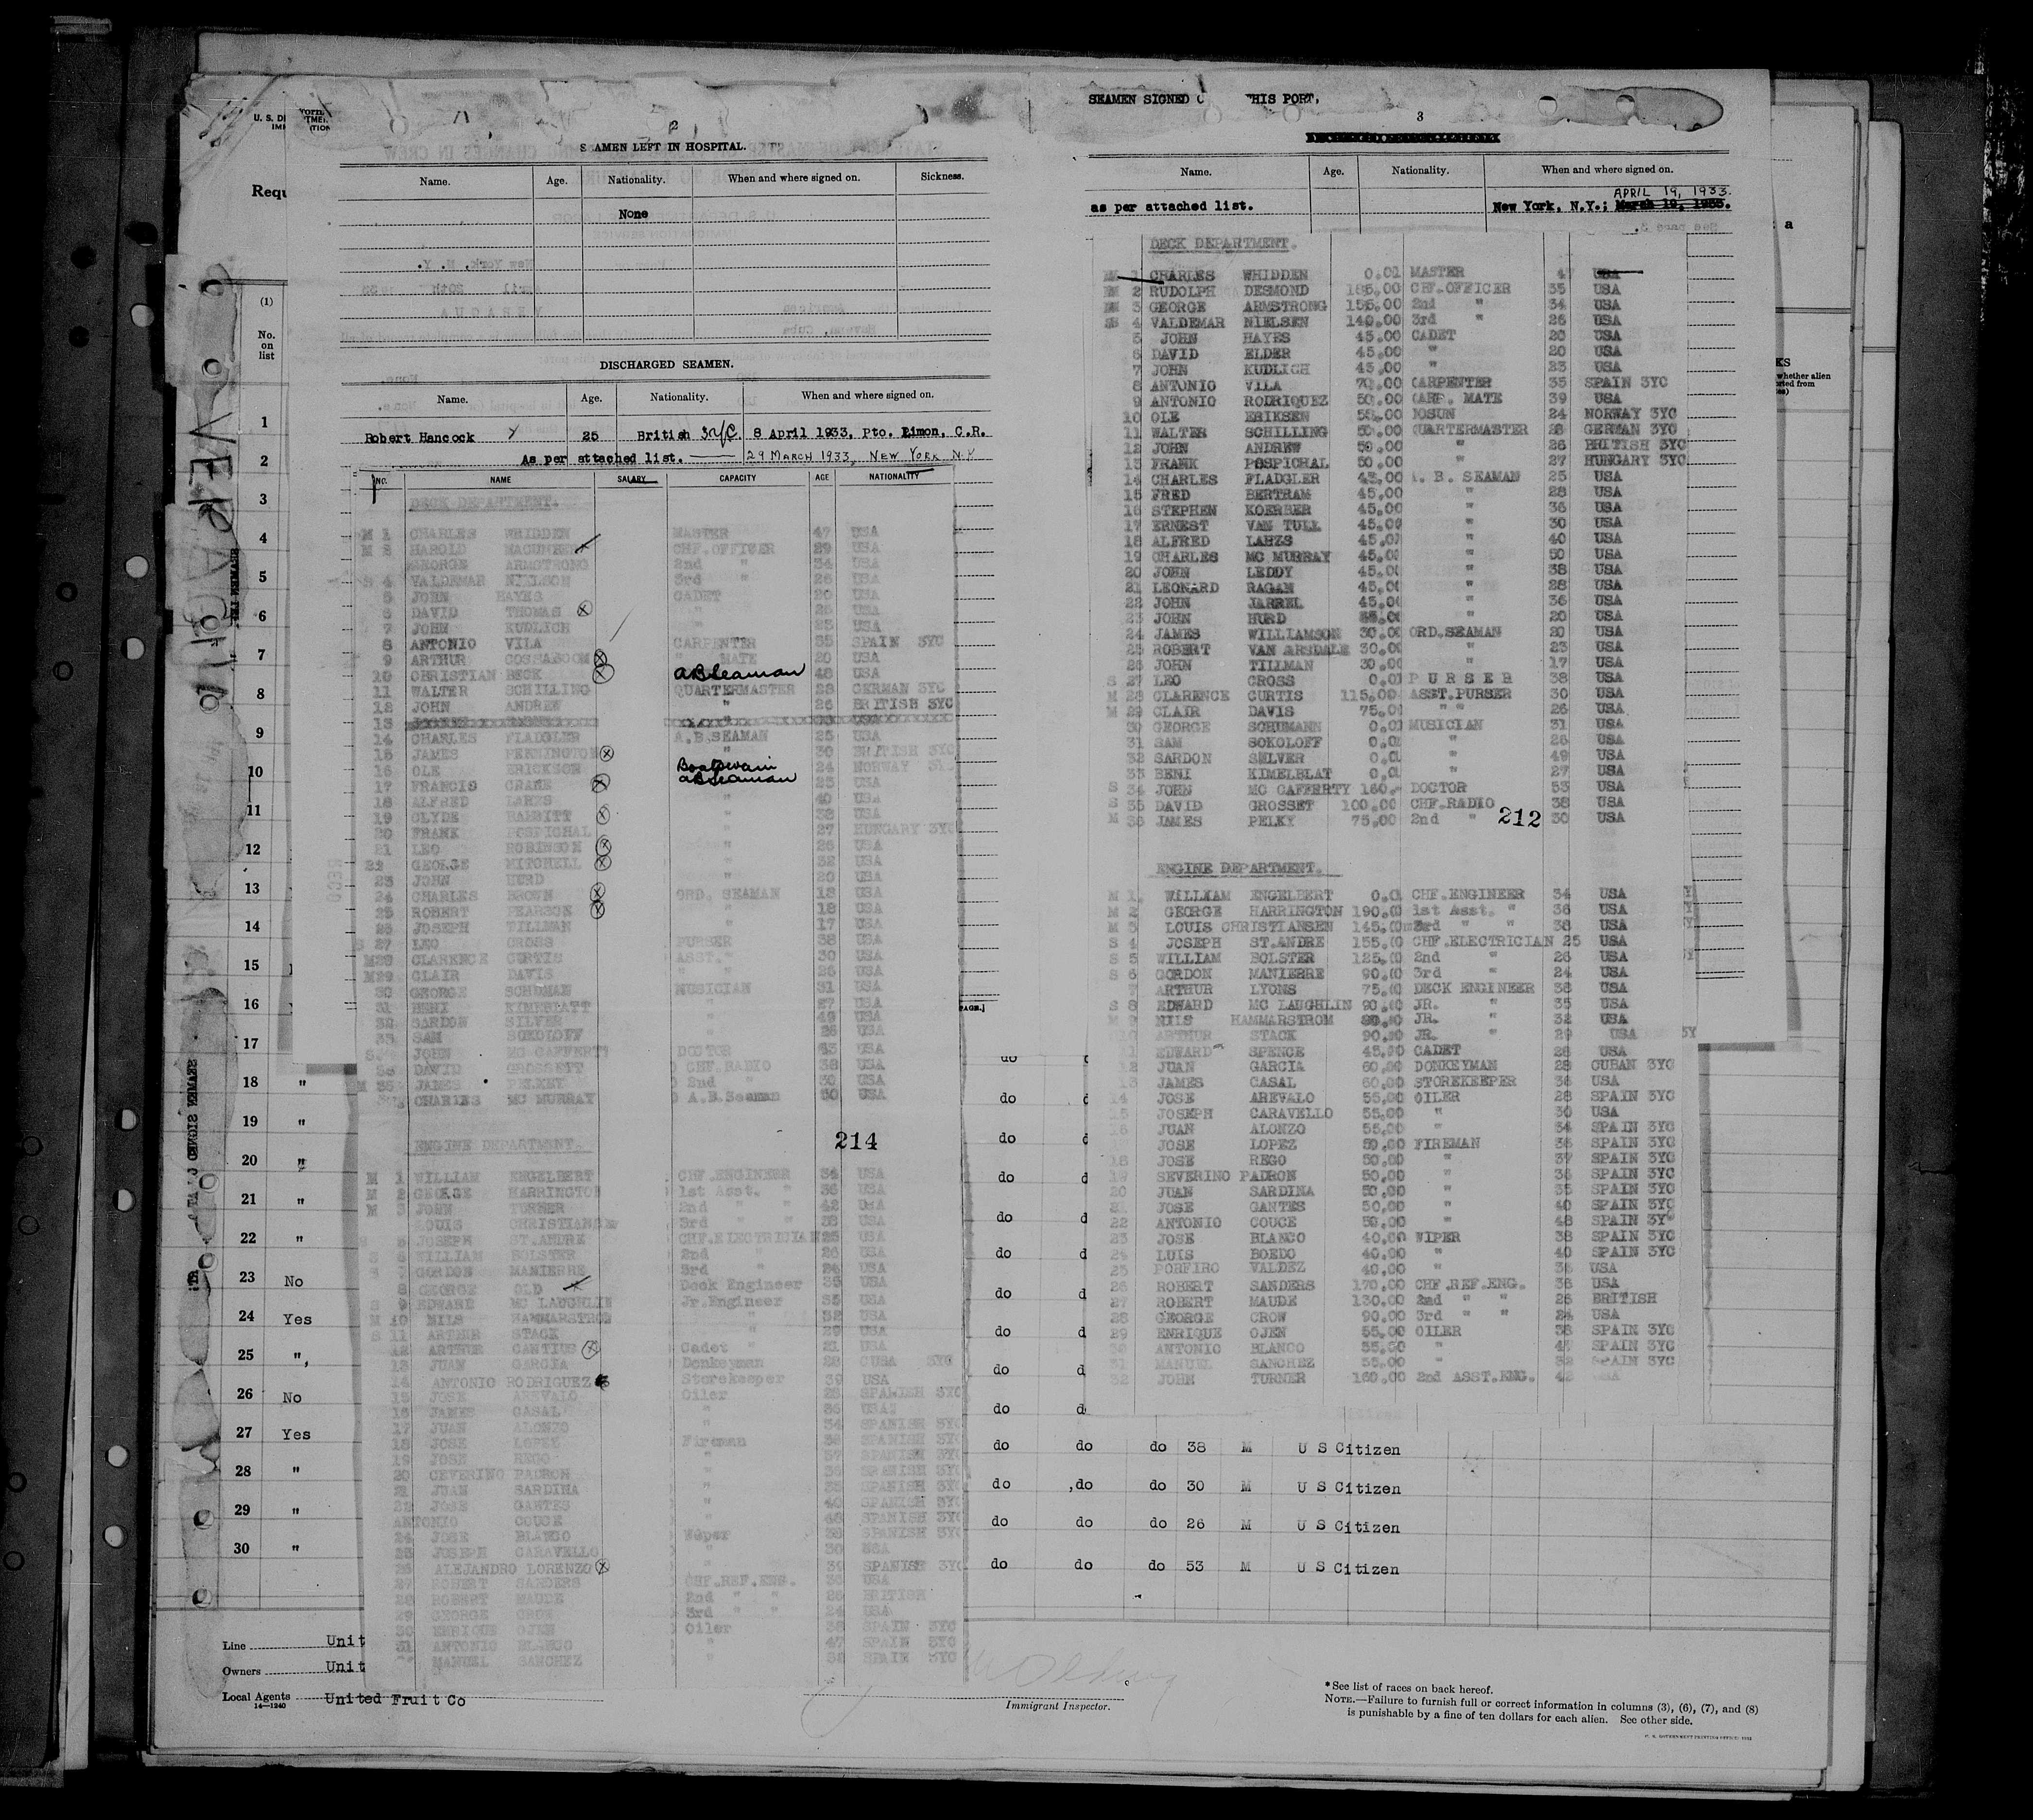 2
SEAMEN LEFT IN HOSPITAL.
Name. Age. Nationality. When and where signed on. Sickness.
None
DISCHARGED SEAMEN.
Name. Age. Nationality. When and where signed on.
Robert Hancock 25 British 8 April 1933, Pto. Limon, C.R.
As per attached list. 29 MARCH 1933, NEW YORK N.Y
NO. NAME SALARY CAPACITY AGE NATIONALITY
DECK DEPARTMENT.
M 1 CHARLES WHIDDEN MASTER 47 USA
M 2 HAROLD CHF.OFFICER 29 USA
GEORGE ARMSTRONG 2nd " 34 USA
S 4 VALDEMAR NIELSEN 3rd " 26 USA
5 JOHN HAYES CADET 20 USA
6 DAVID THOMAS " USA
7 JOHN KUDLICH " 23 USA
8 ANTONIO VILA CARPENTER 35 SPAIN 3YC
9 ARTHUR " MATE 20 USA
10 CHRISTIAN BECK ABSeaman 48 USA
11 WALTER SCHILLING QUARTERMASTER 28 GERMAN 3YC
12 JOHN ANDREW " 26 BRITISH 3YC
14 CHARLES FLADGLER A.B.SEAMAN 25 USA
15 JAMES PENNINGTON " 30 BRITISH 3YC
16 OLE ERICKSON Boatswain 24 NORWAY 3YC
17 FRANCIS CRANE ABSeaman 25 USA
18 ALFRED LAHZS " 40 USA
19 CLYDE BABBITT " 38 USA
20 FRANK POSPICHAL " 27 HUNGARY 3YC
21 LEO ROBINSON " 26 USA
22 GEORGE MITCHELL " 32 USA
23 JOHN HURD " 20 USA
24 CHARLES BROWN ORD. SEAMAN 18 USA
25 ROBERT PEARSON " 18 USA
26 JOSEPH TILLMAN " 17 USA
S 27 LEO CROSS PURSER 38 USA
M28 CLARENCE CURTIS ASST. " 30 USA
M29 CLAIR DAVIS " " 26 USA
30 GEORGE SCHUMAN MUSICIAN 31 USA
31 BENI KIMELBLATT " 27 USA
32 SARDON SILVER " 49 USA
33 SAM SOKOLOFF " 26 USA
S34 JOHN MC CAFFERTY DOCTOR 53 USA
35 DAVID GROSSETT CHF.RADIO 38 USA
M 36 JAMES PELKEY 2nd " 30 USA
CHARLES MC MURRAY A.B.Seaman 50 USA
ENGINE DEPARTMENT. 214
M 1 WILLIAM ENGELBERT CHF.ENGINEER 34 USA
M 2 GEORGE HARRINGTON 1st Asst. " 36 USA
M 3 JOHN TURNER 2nd " " 42 USA
LOUIS CHRISTIANSEN 3rd " " 38 USA
5 JOSEPH ST.ANDRE CHF.ELECTRICIAN 25 USA
S 6 WILLIAM BOLSTER 2nd " 26 USA
S 7 GORDON MANIERRE 3rd " 24 USA
8 GEORGE OLD Deck Engineer 35 USA
S 9 EDWARD MC LAUGHLIN Jr.Engineer 35 USA
M 10 NILS HAMMARSTROM " 32 USA
S 11 ARTHUR STACK " 29 USA
12 ARTHUR CANTIUS Cadet " 21 USA
13 JUAN GARCIA Donkeyman 28 CUBA 3YC
14 ANTONIO RODRIGUEZ Storekeeper 39 USA
15 JOSE AREVALO Oiler 28 SPANISH 3YC
16 JAMES CASAL " 36 USA
17 JUAN ALONZO " 34 SPANISH 3YC
18 JOSE LOPEZ Fireman 36 SPANISH 3YC
19 JOSE REGO " 37 SPANISH 3YC
20 CEVERINO PADRON " 36 SPANISH 3YC
21 JUAN SARDINA " 35 SPANISH 3YC
22 JOSE GANTES " 40 SPANISH 3YC
ANTONIO COUCE " 48 SPANISH 3YC
24 JOSE BLANCO Wiper 38 SPANISH 3YC
25 JOSEPH CARAVELLO " 30 USA
26 ALEJANDRO LORENZO " 39 SPANISH 3YC
27 ROBERT SANDERS CHF.REF.ENG. 38 USA
28 ROBERT MAUDE 2nd " " 26 BRITISH
29 GEORGE CROW 3rd " " 24 USA
30 ENRIQUE OJEN Oiler 38 SPAIN 3YC
31 ANTONIO BLANCO " 47 SPAIN 3YC
MANUEL SANCHEZ " 32 SPAIN 3YC
SEAMEN SIGNED HIS PORT,
3
Name. Age. Nationality. When and where signed on.
APRIL 19, 1933.
as per attached list. New York, N.Y.; March 19, 1933.
DECK DEPARTMENT.
M 1 CHARLES WHIDDEN 0.01 MASTER 47 USA
M 2 RUDOLPH DESMOND 185.00 CHF.OFFICER 35 USA
M 3 GEORGE ARMSTRONG 155.00 2nd " 34 USA
S 4 VALDEMAR NIELSEN 140.00 3rd " 26 USA
5 JOHN HAYES 45.00 CADET 20 USA
6 DAVID ELDER 45.00 " 20 USA
7 JOHN KUDLICH 45.00 " 23 USA
8 ANTONIO VILA 70.00 CARPENTER 35 SPAIN 3YC
9 ANTONIO RODRIQUEZ 50.00 CARP. MATE 39 USA
10 OLE ERIKSEN 55.00 BOSUN 24 NORWAY 3YC
11 WALTER SCHILLING 50.00 QUARTERMASTER 28 GERMAN 3YC
12 JOHN ANDREW 50.00 " 26 BRITISH 3YC
13 FRANK POSPICHAL 50.00 " 27 HUNGARY 3YC
14 CHARLES FLADGLER 45.00 A. B. SEAMAN 25 USA
15 FRED BERTRAM 45.00 " 28 USA
16 STEPHEN KOERBER 45.00 " 36 USA
17 ERNEST VAN TULL 45.00 " 30 USA
18 ALFRED LAHZS 45.00 " 40 USA
19 CHARLES MC MURRAY 45.00 " 50 USA
20 JOHN LEDDY 45.00 " 38 USA
21 LEONARD RAGAN 45.00 " 28 USA
22 JOHN JARREL 45.00 " 36 USA
23 JOHN HURD " 20 USA
24 JAMES WILLIAMSON 30.00 ORD.SEAMAN 20 USA
25 ROBERT VAN ARSDALE 30.00 " 23 USA
26 JOHN TILLMAN 30.00 " 17 USA
S 27 LEO CROSS 0.01 P U R S E R 38 USA
M 28 CLARENCE CURTIS 115.00 ASST.PURSER 30 USA
M 29 CLAIR DAVIS 75.00 " " 26 USA
30 GEORGE SCHUMANN 0.01 MUSICIAN 31 USA
31 SAM SOKOLOFF 0.01 " 26 USA
32 SARDON SILVER 0.01 " 49 USA
33 BENI KIMELBLAT 0.01 " 27 USA
S 34 JOHN MC CAFFERTY 160. DOCTOR 53 USA
S 35 DAVID GROSSET 100.00 CHF.RADIO 38 USA
M 36 JAMES PELKY 75.00 2nd " 212 30 USA
ENGINE DEPARTMENT.
M 1. WILLIAM ENGELBERT 0.01 CHF.ENGINEER 34 USA
M 2 GEORGE HARRINGTON 190.00 1st Asst. " 36 USA
M 3 LOUIS CHRISTIANSEN 145.00 3rd " " 38 USA
S 4 JOSEPH ST.ANDRE 155.00 CHF.ELECTRICIAN 25 USA
S 5 WILLIAM BOLSTER 125.00 2nd " 26 USA
S 6 GORDON MANIERRE 90.00 3rd " 24 USA
7 ARTHUR LYONS 75.00 DECK ENGINEER 38 USA
S 8 EDWARD MC LAUGHLIN 90.00 JR. " 35 USA
M 9 NILS HAMMARSTROM 90.00 JR. " 32 USA
10 ARTHUR STACK 90.00 JR. " 29 USA
11 EDWARD SPENCE 45.00 CADET 26 USA
12 JUAN GARCIA 60.00 DONKEYMAN 28 CUBAN 3YC
13 JAMES CASAL 60.00 STOREKEEPER 36 USA
14 JOSE AREVALO 55.00 OILER 28 SPAIN 3YC
15 JOSEPH CARAVELLO 55.00 " 30 USA
16 JUAN ALONZO 55.00 " 34 SPAIN 3YC
JOSE LOPEZ 50.00 FIREMAN 36 SPAIN 3YC
18 JOSE REGO 50.00 " 37 SPAIN 3YC
19 SEVERINO PADRON 50.00 " 36 SPAIN 3YC
20 JUAN SARDINA 50.00 " 35 SPAIN 3YC
21 JOSE GANTES 50.00 " 40 SPAIN 3YC
22 ANTONIO COUCE 50.00 " 48 SPAIN 3Y
23 JOSE BLANCO 40.00 WIPER 38 SPAIN 3YC
24 LUIS BOEDO 40.00 " 40 SPAIN 3YC
25 PORFIRO VALDEZ 40.00 " 36 USA
26 ROBERT SANDERS 170.00 CHF.REF.ENG. 38 USA
27 ROBERT MAUDE 130.00 2nd " " 26 BRITISH
28 GEORGE CROW 90.00 3rd " " 24 USA
29 ENRIQUE OJEN 55.00 OILER 38 SPAIN 3YC
30 ANTONIO BLANCO 55.00 " 47 SPAIN 3YC
31 MANUEL SANCHEZ 55.00 " 32 SPAIN 3YC
32 JOHN TURNER 160.00 2nd ASST.ENG. 42 USA
Requ
(1)
No.
on
list
1
2
3
4
5
6
7
8
9
10
11
12
13
14
15
16
17
18 "
19 "
20 "
21 "
22 "
23 No
24 Yes
25 "
26 No
27 Yes
28 "
29 "
30 "
VERAGUA
do do do 38 M U S Citizen
do do do 30 M U S Citizen
do do do 26 M U S Citizen
do do do 53 M U S Citizen
Line Unit
Owners Unit
Local Agents United Fruit Co
14—1240
Immigrant Inspector.
* See list of races on back hereof.
NOTE.—Failure to furnish full or correct information in columns (3), (6), (7), and (8)
is punishable by a fine of ten dollars for each alien. See other side.